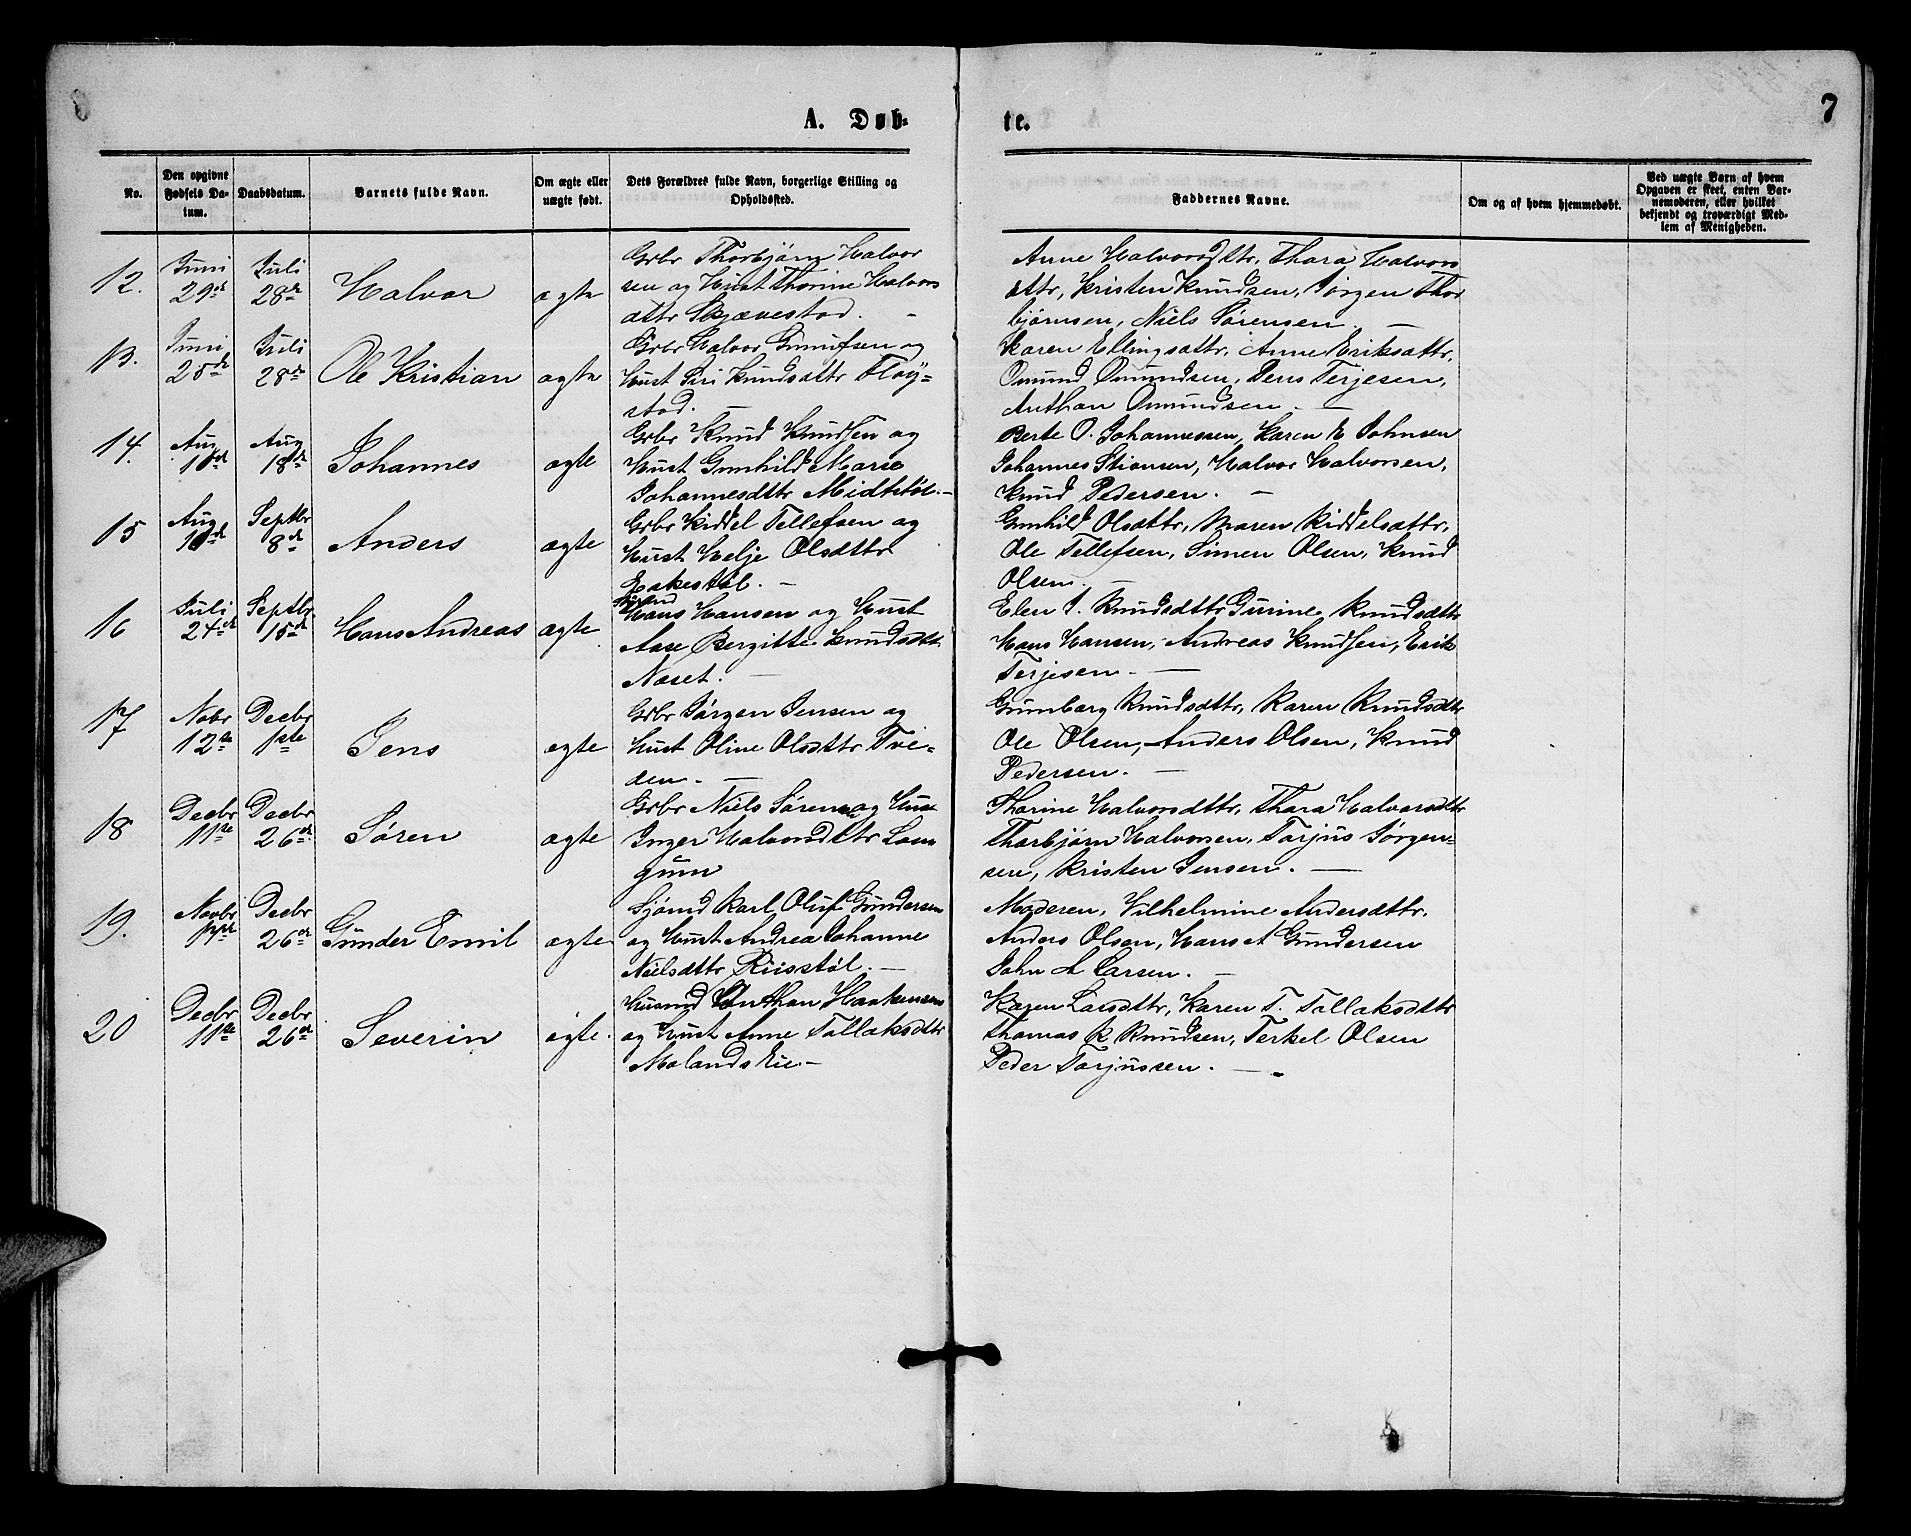 A. Døb-
te.
7
No.
Den opgivne Fødsels Da-tum.
Daabsdatum.
Barnets fulde Navn.
Om ægte eller uægte født.
Dets Forældres fulde Navn, borgerlige Stilling og Opholdssted.
Faddernes Navne.
Om og af hvem hjemmedøbt.
Ved uægte Børn af hvem Opgaven er skeet, enten Bar-nemoderen, eller hvilket bekjendt og troværdigt Med-lem af Menigheden.
12.
Juni 29de
Juli 28de
Halvor
ægte
Grbr Thorbjørn Halvor
sen og Hust Thorine Halvors
dttr Skjævestad.
Anne Halvorsdttr, Thora Halvors
dttr, Kristen Knudsen, Jørgen Thor
bjørnsen, Niels Sørensen.
13.
Juni 28de
Juli 28de
Ole Kristian
ægte
Grbr Halvor Gunufsen og
Hust Siri Knudsdttr Fløy-
stad.
Karen Ellingsdttr, Anne Eriksdttr,
Omund Omundsen, Jens Terjesen,
Anthon Omundsen.
14.
Aug 10de
Aug 18de
Johannes
ægte
Grbr Knud Knudsen og
Hust Gunhild Marie
Johannesdttr Midtstøl.
Berte O. Johannessen, Karen E Johnsen
Johannes Stiansen, Halvor Halvorsen,
Knud Pedersen.
15
Aug 10de
Septbr 8de
Anders
ægte
Grbr Kiddel Tellefsen og
Hust Helje Olsdttr
Eskestøl.
Gunhild Olsdttr, Maren Kiddelsdttr,
Ole Tellefsen, Simen Olsen, Knud
Olsen.
16
Juli 24de
Septbr. 15de
Hans Andreas
ægte
Hans Hansen og Hust
Aase Bergitte Knudsdttr
Næset.
Elen J. Knudsdttr Gurine Knudsdttr
Hans Hansen, Andreas Knudsen, Erik
Terjesen
17
Nobr 12te
Decbr 1ste
Jens
ægte
Grbr Jørgen Jensen og
Hust Oline Olsdttr Tve-
den.
Gunborg Knudsdttr, Karen Knudsdttr
Ole Olsen, Anders Olsen, Knud
Pedersen.
18
Decbr 11te
Decbr 26de
Søren
ægte
Grbr Niels Sørensen og Hust
Inger Halvorsdttr Lan
gum
Thorine Halvorsdttr, Thora Halvorsdttr
Thorbjørn Halvorsen, Torjus Jørgen-
sen, Kristen Jensen.
19.
Novbr
Decbr 26de
Gunder Emil
ægte
Sjømd Karl Oluf Gundersen
og Hust Andrea Johanne
Nielsdttr Riisstøl.
Moderen, Vilhelmine Andersdttr.
Anders Olsen, Hans A Gundersen
John A Larsen.
20
Decbr 11te
Decbr 26de
Severin
ægte.
Husmd Anthon Haakensen
og Hust Anne Tallaksdttr
Molands Eie.
Karen Larsdttr, Karen T. Tallaksdttr
Thomas K Knudsen, Terkel Olsen
Peder Torjussen.